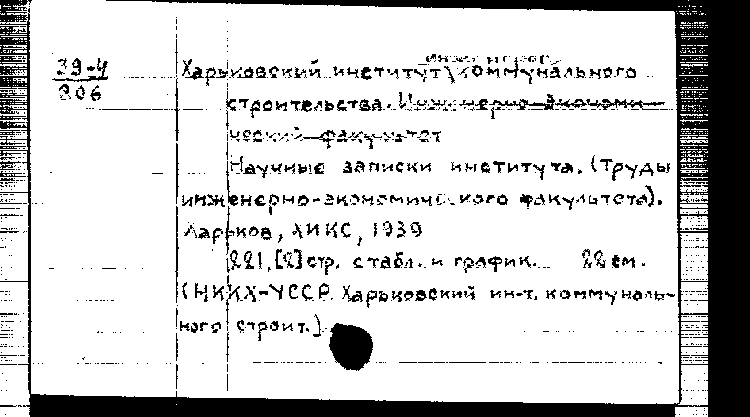 39-4
206
инженеров
Харьковский институт \ коммунального
строительства. Инженерно-экономи-
ческий факультет
Научные записки института. (Труды
инженерно-экономического факультета).
Харьков, ХИКС, 1939
221, [2] стр. с табл. и график. 22 см.
(НККХ-УССР. Харьковский ин-т. коммуналь-
ного строит.)